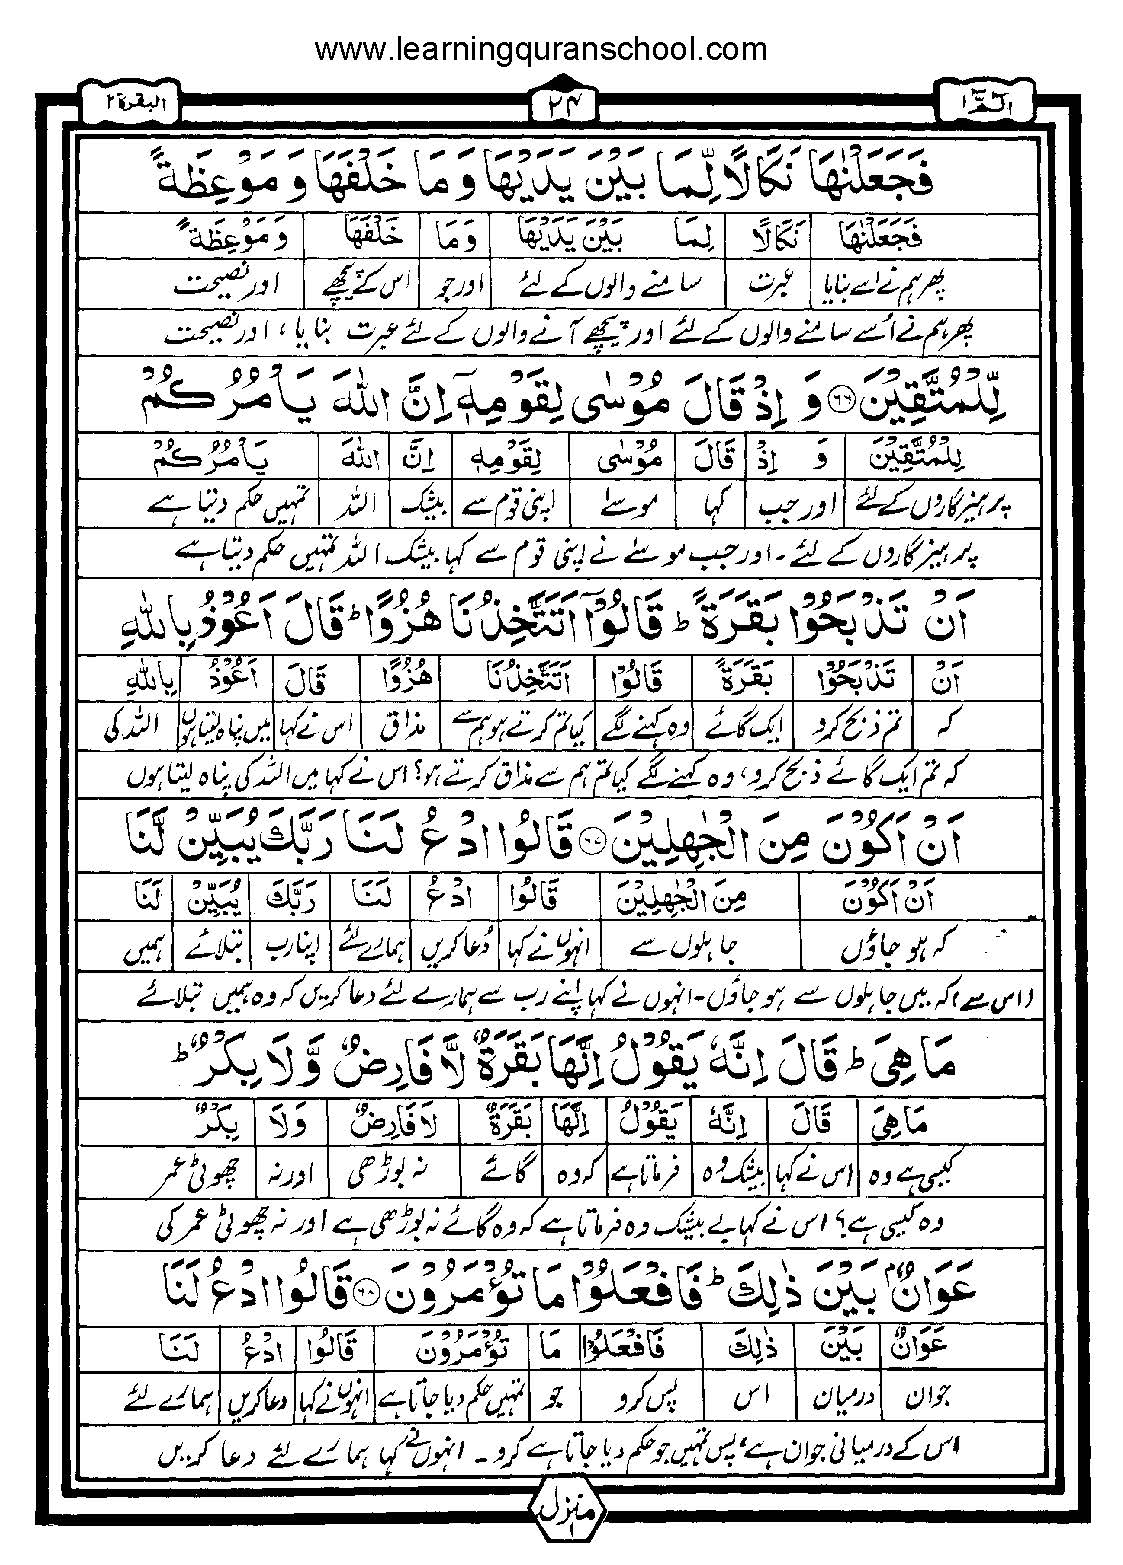 www.learningquranschool.com
الٓمّٓ ١ ٢٤ البقرة ٢
فَجَعَلْنٰهَا نَكَالًا لِّمَا بَيْنَ يَدَيْهَا وَ مَا خَلْفَهَا وَ مَوْعِظَةً
فَجَعَلْنٰهَا نَكَالًا لِمَا بَيْنَ يَدَيْهَا وَ مَا خَلْفَهَا وَ مَوْعِظَةً
پھر ہم نے اسے بنایا عبرت سامنے والوں کے لئے اور جو اس کے پیچھے اور نصیحت
پھر ہم نے اُسے سامنے والوں کے لئے اور پیچھے آنے والوں کے لئے عبرت بنایا، اور نصیحت
لِّلْمُتَّقِيْنَ ۶۶ وَ اِذْ قَالَ مُوْسٰى لِقَوْمِهٖٓ اِنَّ اللّٰهَ يَاْمُرُكُمْ
لِلْمُتَّقِيْنَ وَ اِذْ قَالَ مُوْسٰى لِقَوْمِهٖ اِنَّ اللّٰهَ يَاْمُرُكُمْ
پرہیزگاروں کے لئے اور جب کہا موسےٰ اپنی قوم سے بیشک اللہ تمہیں حکم دیتا ہے
پرہیزگاروں کے لئے۔ اور جب موسےٰ نے اپنی قوم سے کہا بیشک اللہ تمہیں حکم دیتا ہے
اَنْ تَذْبَحُوْا بَقَرَةً ؕ قَالُوْٓا اَتَتَّخِذُنَا هُزُوًا ؕ قَالَ اَعُوْذُ بِاللّٰهِ
اَنْ تَذْبَحُوْا بَقَرَةً قَالُوْا اَتَتَّخِذُنَا هُزُوًا قَالَ اَعُوْذُ بِاللّٰهِ
کہ تم ذبح کرو ایک گائے وہ کہنے لگے کیا تم کرتے ہو ہم سے مذاق اس نے کہا میں پناہ لیتا ہوں اللہ کی
کہ تم ایک گائے ذبح کرو، وہ کہنے لگے کیا تم ہم سے مذاق کرتے ہو؟ اس نے کہا میں اللہ کی پناہ لیتا ہوں
اَنْ اَكُوْنَ مِنَ الْجٰهِلِيْنَ ۶۷ قَالُوا ادْعُ لَنَا رَبَّكَ يُبَيِّنْ لَّنَا
اَنْ اَكُوْنَ مِنَ الْجٰهِلِيْنَ قَالُوا ادْعُ لَنَا رَبَّكَ يُبَيِّنْ لَنَا
کہ ہو جاؤں جاہلوں سے انہوں نے کہا دُعا کریں ہمارے لئے اپنا رب بتلائے ہمیں
(اس سے) کہ میں جاہلوں سے ہو جاؤں۔ انہوں نے کہا اپنے رب سے ہمارے لئے دعا کریں کہ وہ ہمیں بتلائے
مَا هِىَ ؕ قَالَ اِنَّهٗ يَقُوْلُ اِنَّهَا بَقَرَةٌ لَّا فَارِضٌ وَّ لَا بِكْرٌ ؕ
مَا هِىَ قَالَ اِنَّهٗ يَقُوْلُ اِنَّهَا بَقَرَةٌ لَا فَارِضٌ وَلَا بِكْرٌ
کیسی ہے وہ اس نے کہا بیشک وہ فرماتا ہے کہ وہ گائے نہ بوڑھی اور نہ چھوٹی عمر
وہ کیسی ہے؟ اس نے کہا بے بیشک وہ فرماتا ہے کہ وہ گائے نہ بوڑھی ہے اور نہ چھوٹی عمر کی
عَوَانٌۢ بَيْنَ ذٰلِكَ ؕ فَافْعَلُوْا مَا تُؤْمَرُوْنَ ۶۸ قَالُوا ادْعُ لَنَا
عَوَانٌ بَيْنَ ذٰلِكَ فَافْعَلُوْا مَا تُؤْمَرُوْنَ قَالُوا ادْعُ لَنَا
جوان درمیان اس پس کرو جو تمہیں حکم دیا جاتا ہے انہوں نے کہا دعا کریں ہمارے لئے
اس کے درمیانی جوان ہے، پس تمہیں جو حکم دیا جاتا ہے کرو۔ انہوں نے کہا ہمارے لئے دعا کریں
منزل ١